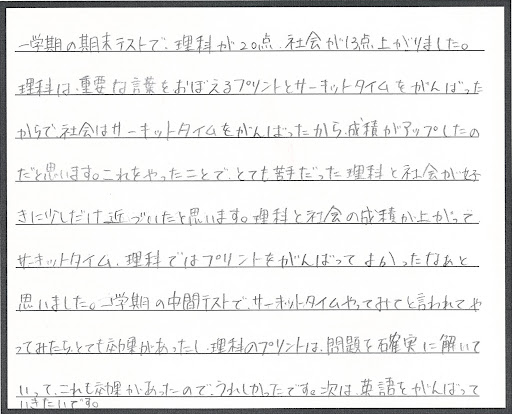 一学期の期末テストで、理科が20点、社会が13点上がりました。
理科は、重要な言葉をおぼえるプリントとサーキットタイムをがんばった
からで、社会はサーキットタイムをがんばったから、成績がアップしたの
だと思います。これをやったことで、とても苦手だった理科と社会が好
きに少しだけ近づいたと思います。理科と社会の成績が上がって
サーキットタイム、理科ではプリントをがんばってよかったなぁと
思いました。一学期の中間テストで、サーキットタイムやってみてと言われてや
ってみたら、とても効果があったし、理科のプリントは、問題を確実に解いて
いって、これも効果があったので、うれしかったです。次は、英語をがんばって
いきたいです。